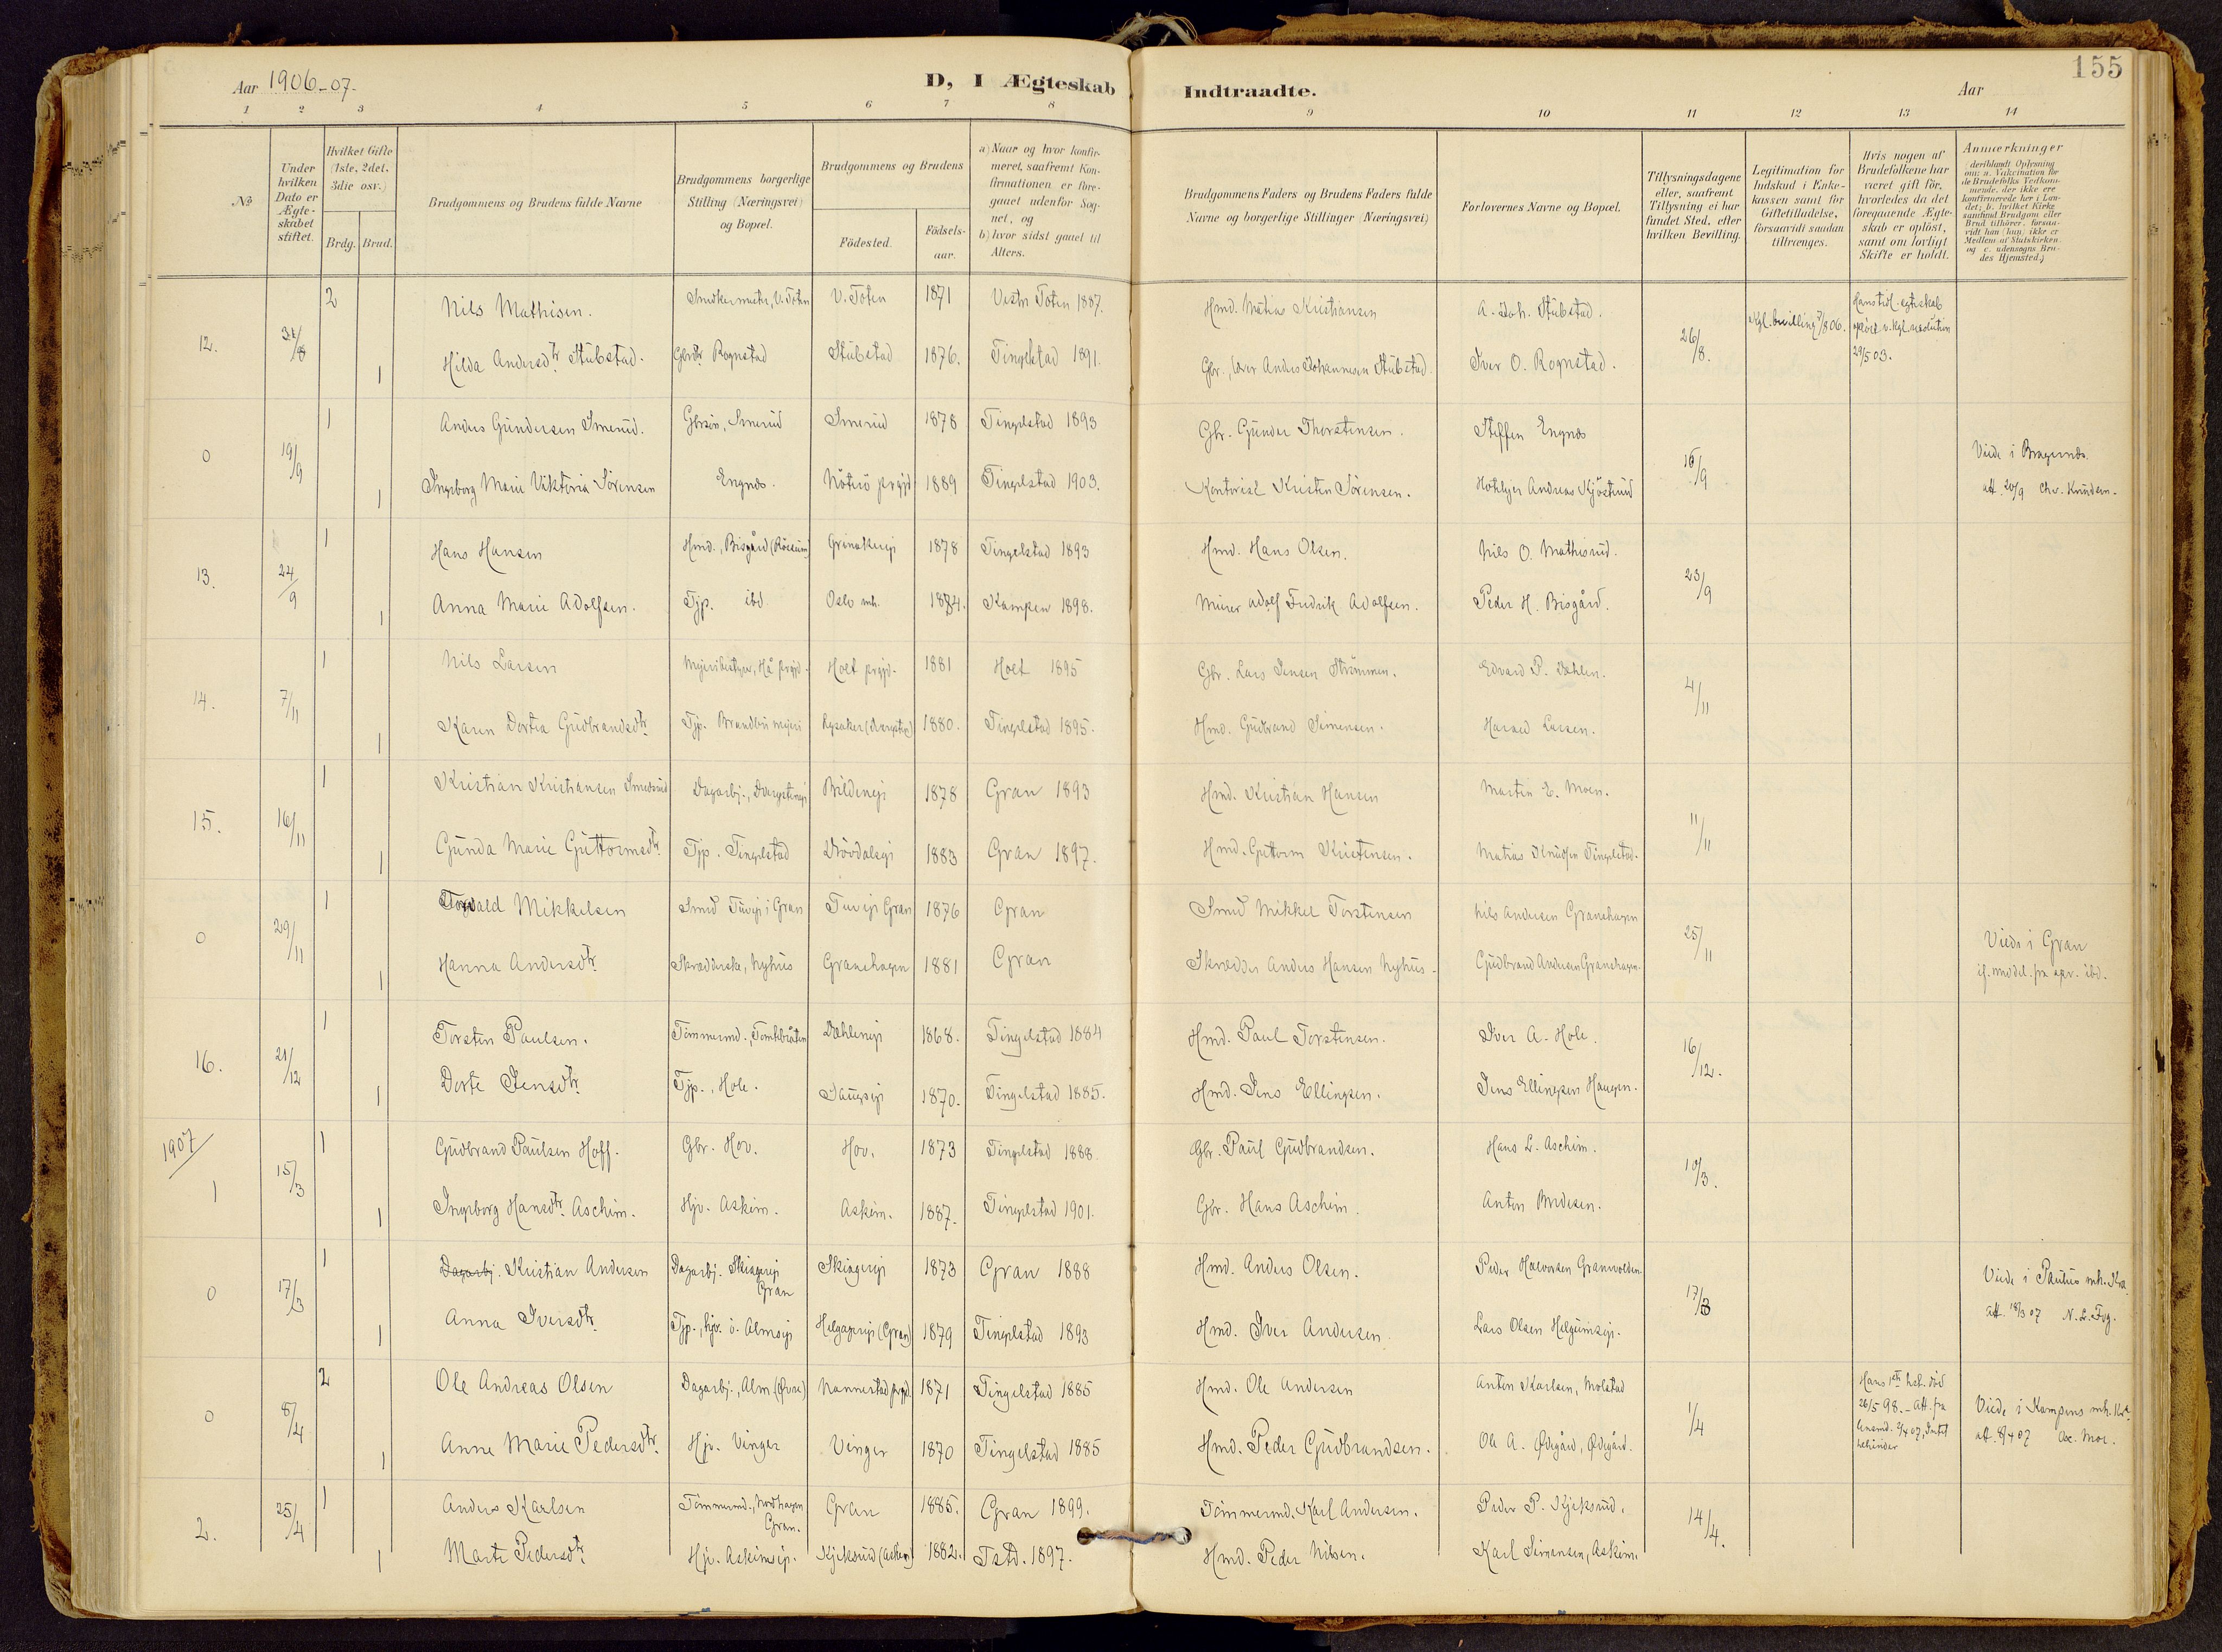 155
Aar 1906-07.
D, I Ægteskab Indtraadte.
Aar
1 2 3 4 5 6 7 8 9 10 11 12 13 14
№
Under hvilken Dato er Ægteskabet stiftet.
Hvilket Gifte (1ste, 2det, 3die osv.)
Brdg. Brud.
Brudgommens og Brudens fulde Navne
Brudgommens borgerlige Stilling (Næringsvei) og Bopæl.
Brudgommens og Brudens
Födested.
Födsels-aar.
a) Naar og hvor konfirmeret, saafremt Konfirmationen er foregaaet udenfor Sognet, og
b) hvor sidst gaaet til Alters.
Brudgommens Faders og Brudens Faders fulde Navne og borgerlige Stillinger (Næringsvei)
Forlovernes Navne og Bopæl.
Tillysningsdagene eller, saafremt Tillysning ei har fundet Sted, efter hvilken Bevilling.
Legitimation for Indskud i Enkekassen samt for Giftetilladelse, forsaavidt saadan tiltrænges.
Hvis nogen af Brudefolkene har været gift för, hvorledes da det foregaaende Ægteskab er oplöst, samt om lovligt Skifte er holdt.
Anmærkninger
(deriblandt Oplysning om: a. Vaccination for de Brudefolks Vedkommende, der ikke ere konfirmerede her i Landet; b. hvilket Kirkesamfund Brudgom eller Brud tilhörer, forsaavidt han (hun) ikke er Medlem af Statskirken, og c. udensogns Brudes Hjemsted.)
12. 31/8 2 Nils Mathisen. V. Toten 1871 Vestre Toten 1887. Hmd. Matias Kristiansen A. Joh. Stubstad. 26/8. Kgl. bevilling 7/8 06. Hans tidl. egteskab opløst v. kgl. resolution 29/5 03.
1 Hilda Andersdtr. Stubstad. Gbrdtr Rognstad Stubstad 1876. Tingelstad 1891. Gbr., lærer Anders Johannesen Stubstad. Iver O. Rognstad.
0 19/9 1 Anders Gundersen Smerud. Gbrsön, Smerud Smerud 1878 Tingelstad 1893 Gbr. Gunder Thorstensen. Steffen Engnæs 16/9 Viede i Bragernæs.
1 Ingeborg Marie Viktoria Sörensen Engnæs. Nöterö prgjd 1889 Tingelstad 1903. Kontorist Kristen Sörensen. Andreas Kjöstrud att. 20/9 Chr. Knudsen.
13. 24/9 1 Hans Hansen Hmd., Bisgård (Röisum) Grinakereje 1878 Tingelstad 1893 Hmd. Hans Olsen. Nils O. Mathisrud. 23/9
1 Anna Marie Adolfsen. Tjp. ibd Oslo mh. 1884. Kampen 1898. Murer Adolf Fredrik Adolfsen. Peder H. Bisgård.
14. 7/11 1 Nils Larsen Mejeribestyrer, Hå prgjd. Holt prgjd. 1881 Holt 1895 Gbr. Lars Jensen Strömmen. Edvard P. Dæhlen. 4/11
1 Karen Dortea Gudbrandsdtr Tjp. Brandbu mejeri 1880. Tingelstad 1895. Hmd. Gudbrand Simensen. Harald Larsen.
15. 16/11 1 Kristian Kristiansen Smedsrud Dagarbj., Dvergsteneje Bildeneje 1878 Gran 1893 Hmd. Kristian Hansen Martin E. Moen. 11/11
1 Gunda Marie Guttormsdtr. Tjp. Tingelstad Drövdalseje 1883 Gran 1897. Hmd. Guttorm Kristensen. Matias Knudsen Tingelstad.
0 29/11 1 Torvald Mikkelsen Smed Tuveje i Gran Tuveje Gran 1876 Gran Smed Mikkel Torstensen Nils Andersen Granehagen 25/11 Viede i Gran
1 Hanna Andersdtr. Skrædderske, Nyhus Granehagen 1881 Gran Skrædder Anders Hansen Nyhus. Gudbrand Andersen Granehagen. if. meddel. fra spr. ibd.
16. 21/12 1 Torsten Paulsen. Tömmermd., Tomtebråten Dæhleneje 1868. Tingelstad 1884 Hmd. Paul Torstensen. Iver A. Hole. 16/12.
1 Dorte Jensdtr. Tjp., Hole. 1870. Tingelstad 1885. Hmd. Jens Ellingsen. Jens Ellingsen Haugen.
1907
1 15/3 1 Gudbrand Paulsen Hoff. Gbr. Hov. Hov. 1873 Tingelstad 1888 Gbr. Paul Gudbrandsen. Hans L. Aschim. 10/3.
1 Ingeborg Hansdtr. Aschim. Hjv. Askim. Askim. 1887. Tingelstad 1901. Gbr. Hans Aschim. Anton
0 17/3 1 Dagarbj. Kristian Andersen Dagarbj. Skiagereje Gran Skiagereje 1873 Gran 1888 Hmd. Anders Olsen. Peder Halvorsen Granvolden 17/3 Viede i Paulus mh. Kra.
1 Anna Iversdtr. Tjp., hjv. ö. Almseje Helgageneje (Gran) 1879 Tingelstad 1893 Hmd. Iver Andersen. Lars Olsen Helgumseje. att. 18/3 07 N. L. Fog.
0 8/4 2 Ole Andreas Olsen Dagarbj., Alm (Øvre) Nannestad prgjd. 1871 Tingelstad 1885 Hmd. Ole Andersen Anton Karlsen, Molstad 1/4 Hans 1ste hst. död 26/5 98. - Att. fra lensmd. 2/4 07, Intet behinder Viede i Kampens mh. Kra.
1 Anne Marie Pedersdtr. Hjv. Vinger Vinger 1870 Tingelstad 1885 Hmd. Peder Gudbrandsen. Ole A. Ødegård, Ødegård. att. 8/4 07
2. 25/4 1 Anders Karlsen Tömmermd., Nordhagen Gran. Gran 1885. Gran 1899. Tömmermd. Karl Andersen. Peder P. Kjeksrud. 14/4.
1 Marte Pedersdtr Hjv. Askimseje. Kjeksrud (Askim) 1882. Tstd. 1897. Hmd. Peder Nilsen. Karl Simensen, Askim.